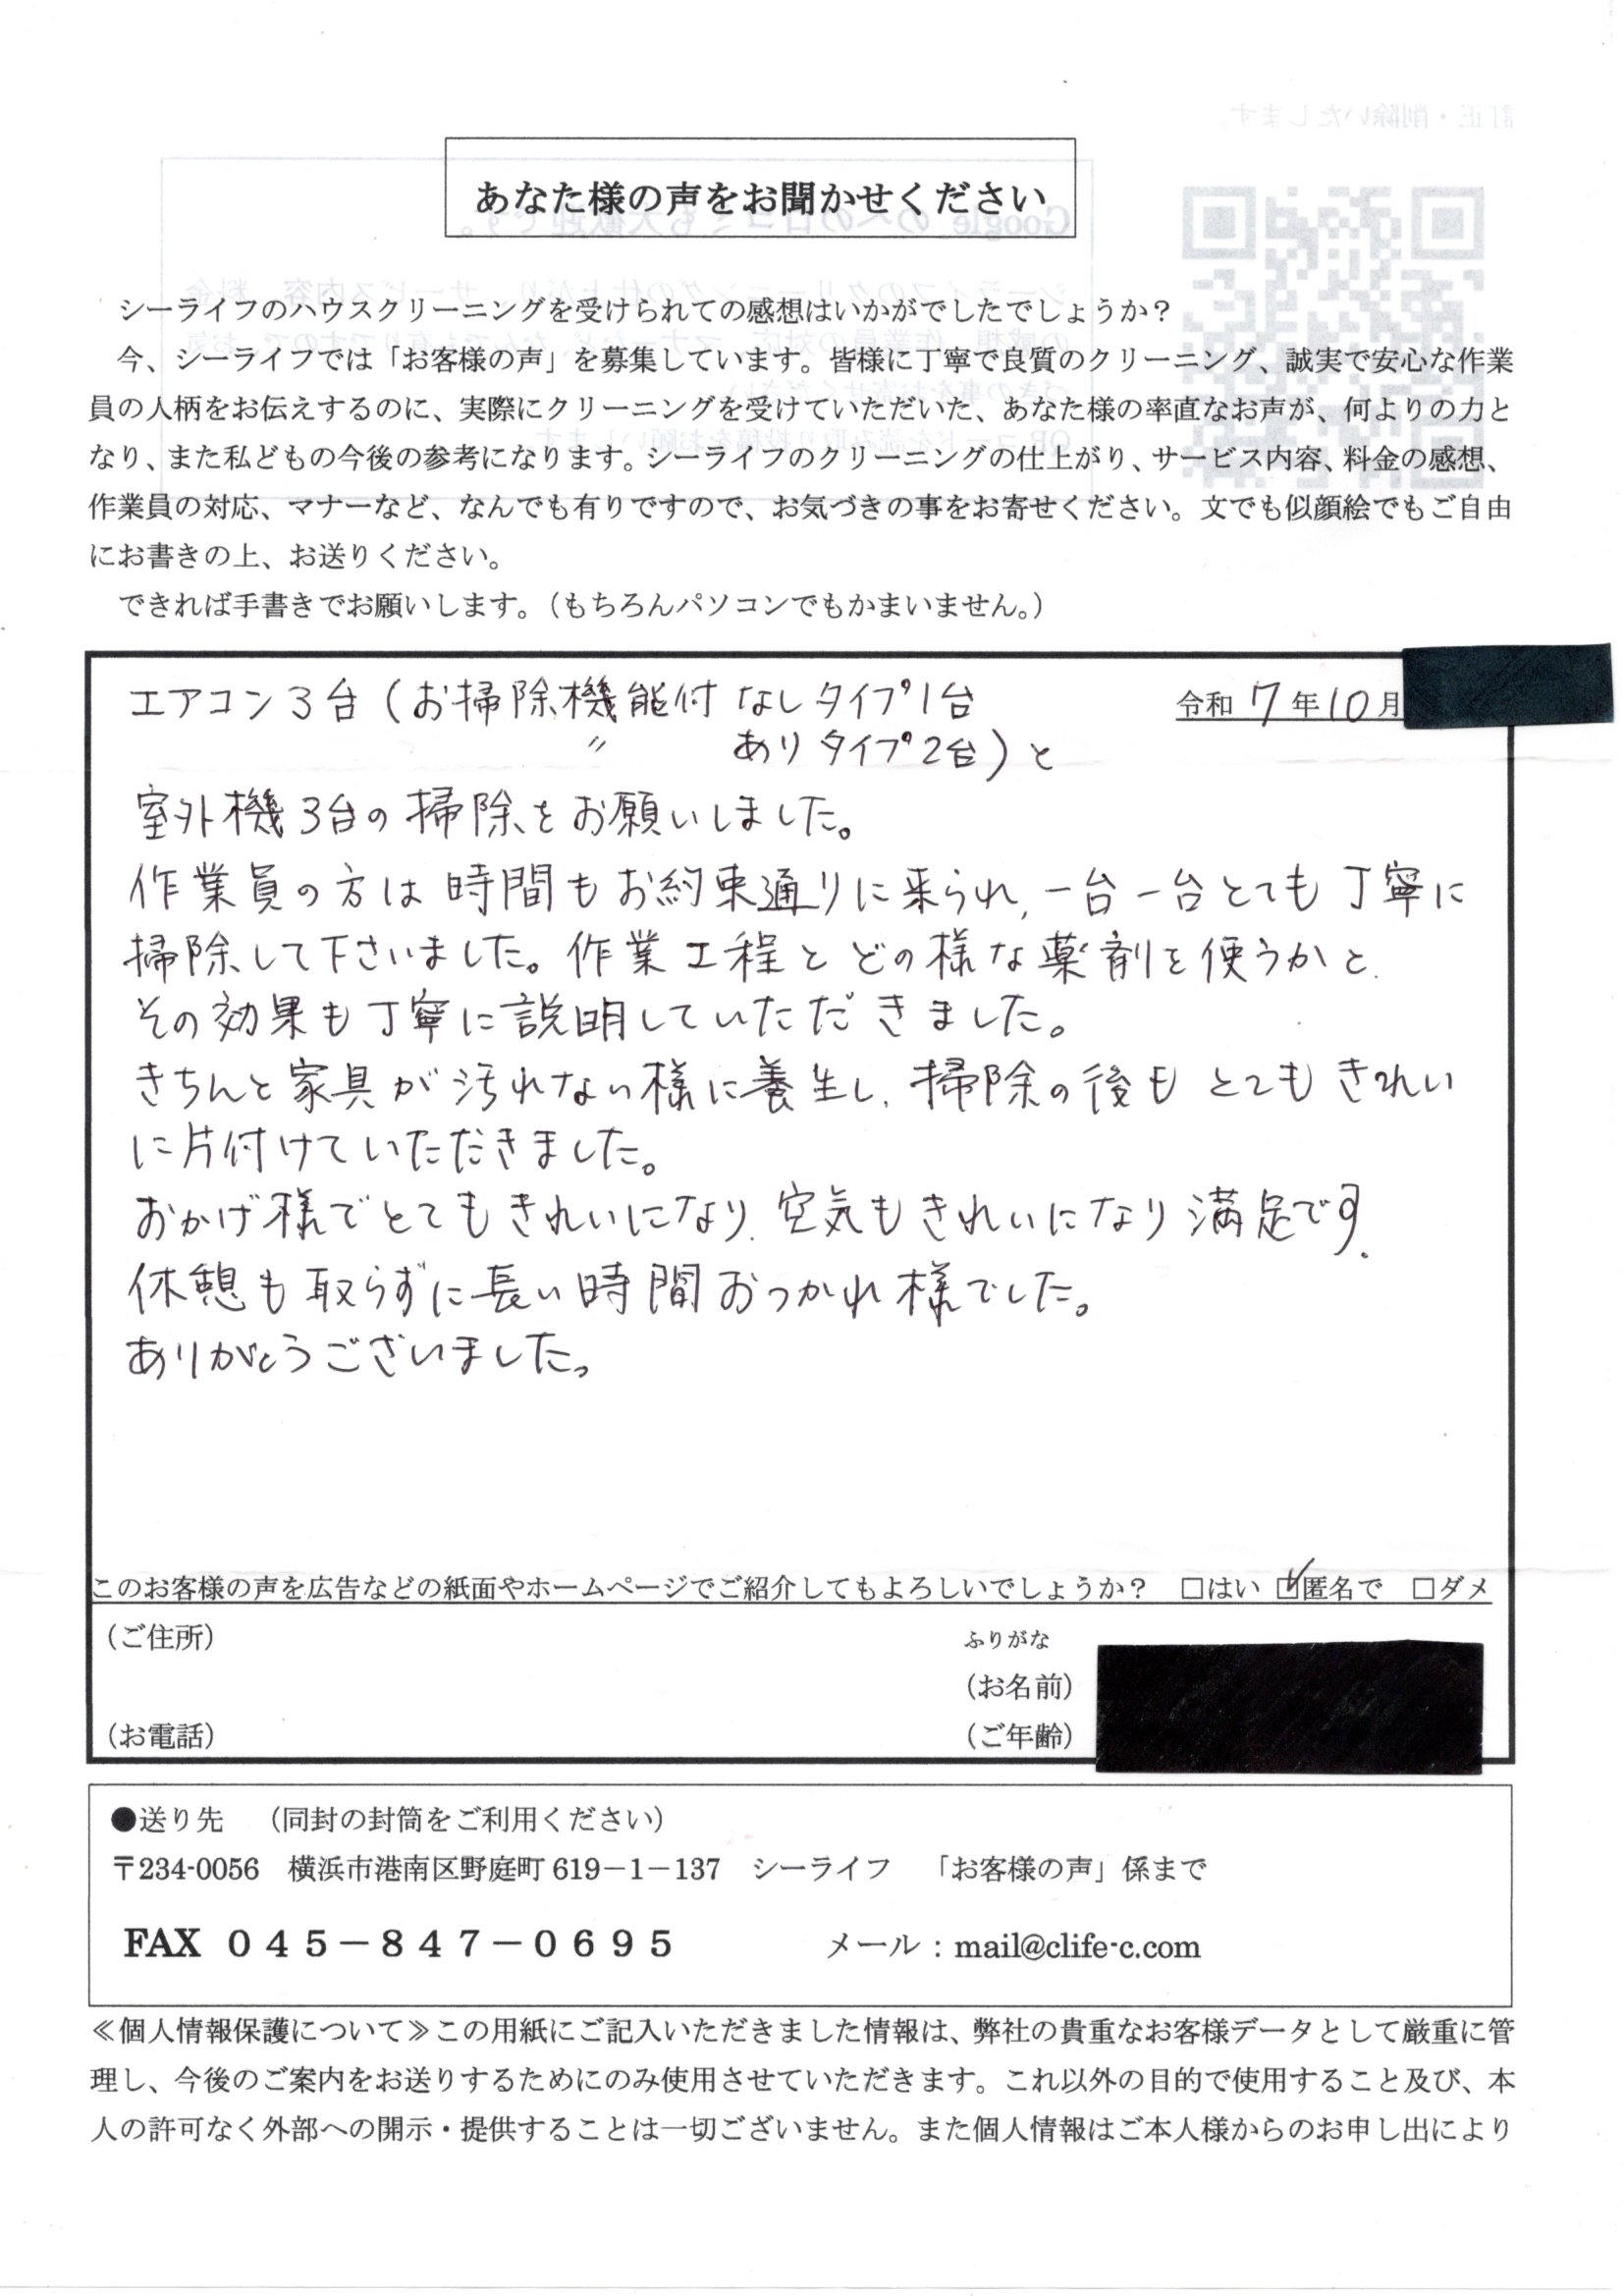 あなた様の声をお聞かせください
シーライフのハウスクリーニングを受けられての感想はいかがでしたでしょうか?
今、シーライフでは「お客様の声」を募集しています。皆様に丁寧で良質のクリーニング、誠実で安心な作業
員の人柄をお伝えするのに、実際にクリーニングを受けていただいた、あなた様の率直なお声が、何よりの力と
なり、また私どもの今後の参考になります。シーライフのクリーニングの仕上がり、サービス内容、料金の感想、
作業員の対応、マナーなど、なんでも有りですので、お気づきの事をお寄せください。文でも似顔絵でもご自由
にお書きの上、お送りください。
できれば手書きでお願いします。(もちろんパソコンでもかまいません。)
令和 7 年 10 月
エアコン3台(お掃除機能付 なしタイプ1台
〃 ありタイプ2台)と
室外機3台の掃除をお願いしました。
作業員の方は時間もお約束通りに来られ、一台一台とても丁寧に
掃除して下さいました。作業工程とどの様な薬剤を使うかと、
その効果も丁寧に説明していただきました。
きちんと家具が汚れない様に養生し、掃除の後もとてもきれい
に片付けていただきました。
おかげ様でとてもきれいになり、空気もきれいになり満足です。
休憩も取らずに長い時間おつかれ様でした。
ありがとうございました。
このお客様の声を広告などの紙面やホームページでご紹介してもよろしいでしょうか? □はい ☑匿名で □ダメ
(ご住所) ふりがな
(お名前)
(お電話) (ご年齢)
●送り先 (同封の封筒をご利用ください)
〒234-0056 横浜市港南区野庭町 619-1-137 シーライフ 「お客様の声」係まで
FAX 045-847-0695 メール:mail@clife-c.com
≪個人情報保護について≫この用紙にご記入いただきました情報は、弊社の貴重なお客様データとして厳重に管
理し、今後のご案内をお送りするためにのみ使用させていただきます。これ以外の目的で使用すること及び、本
人の許可なく外部への開示・提供することは一切ございません。また個人情報はご本人様からのお申し出により